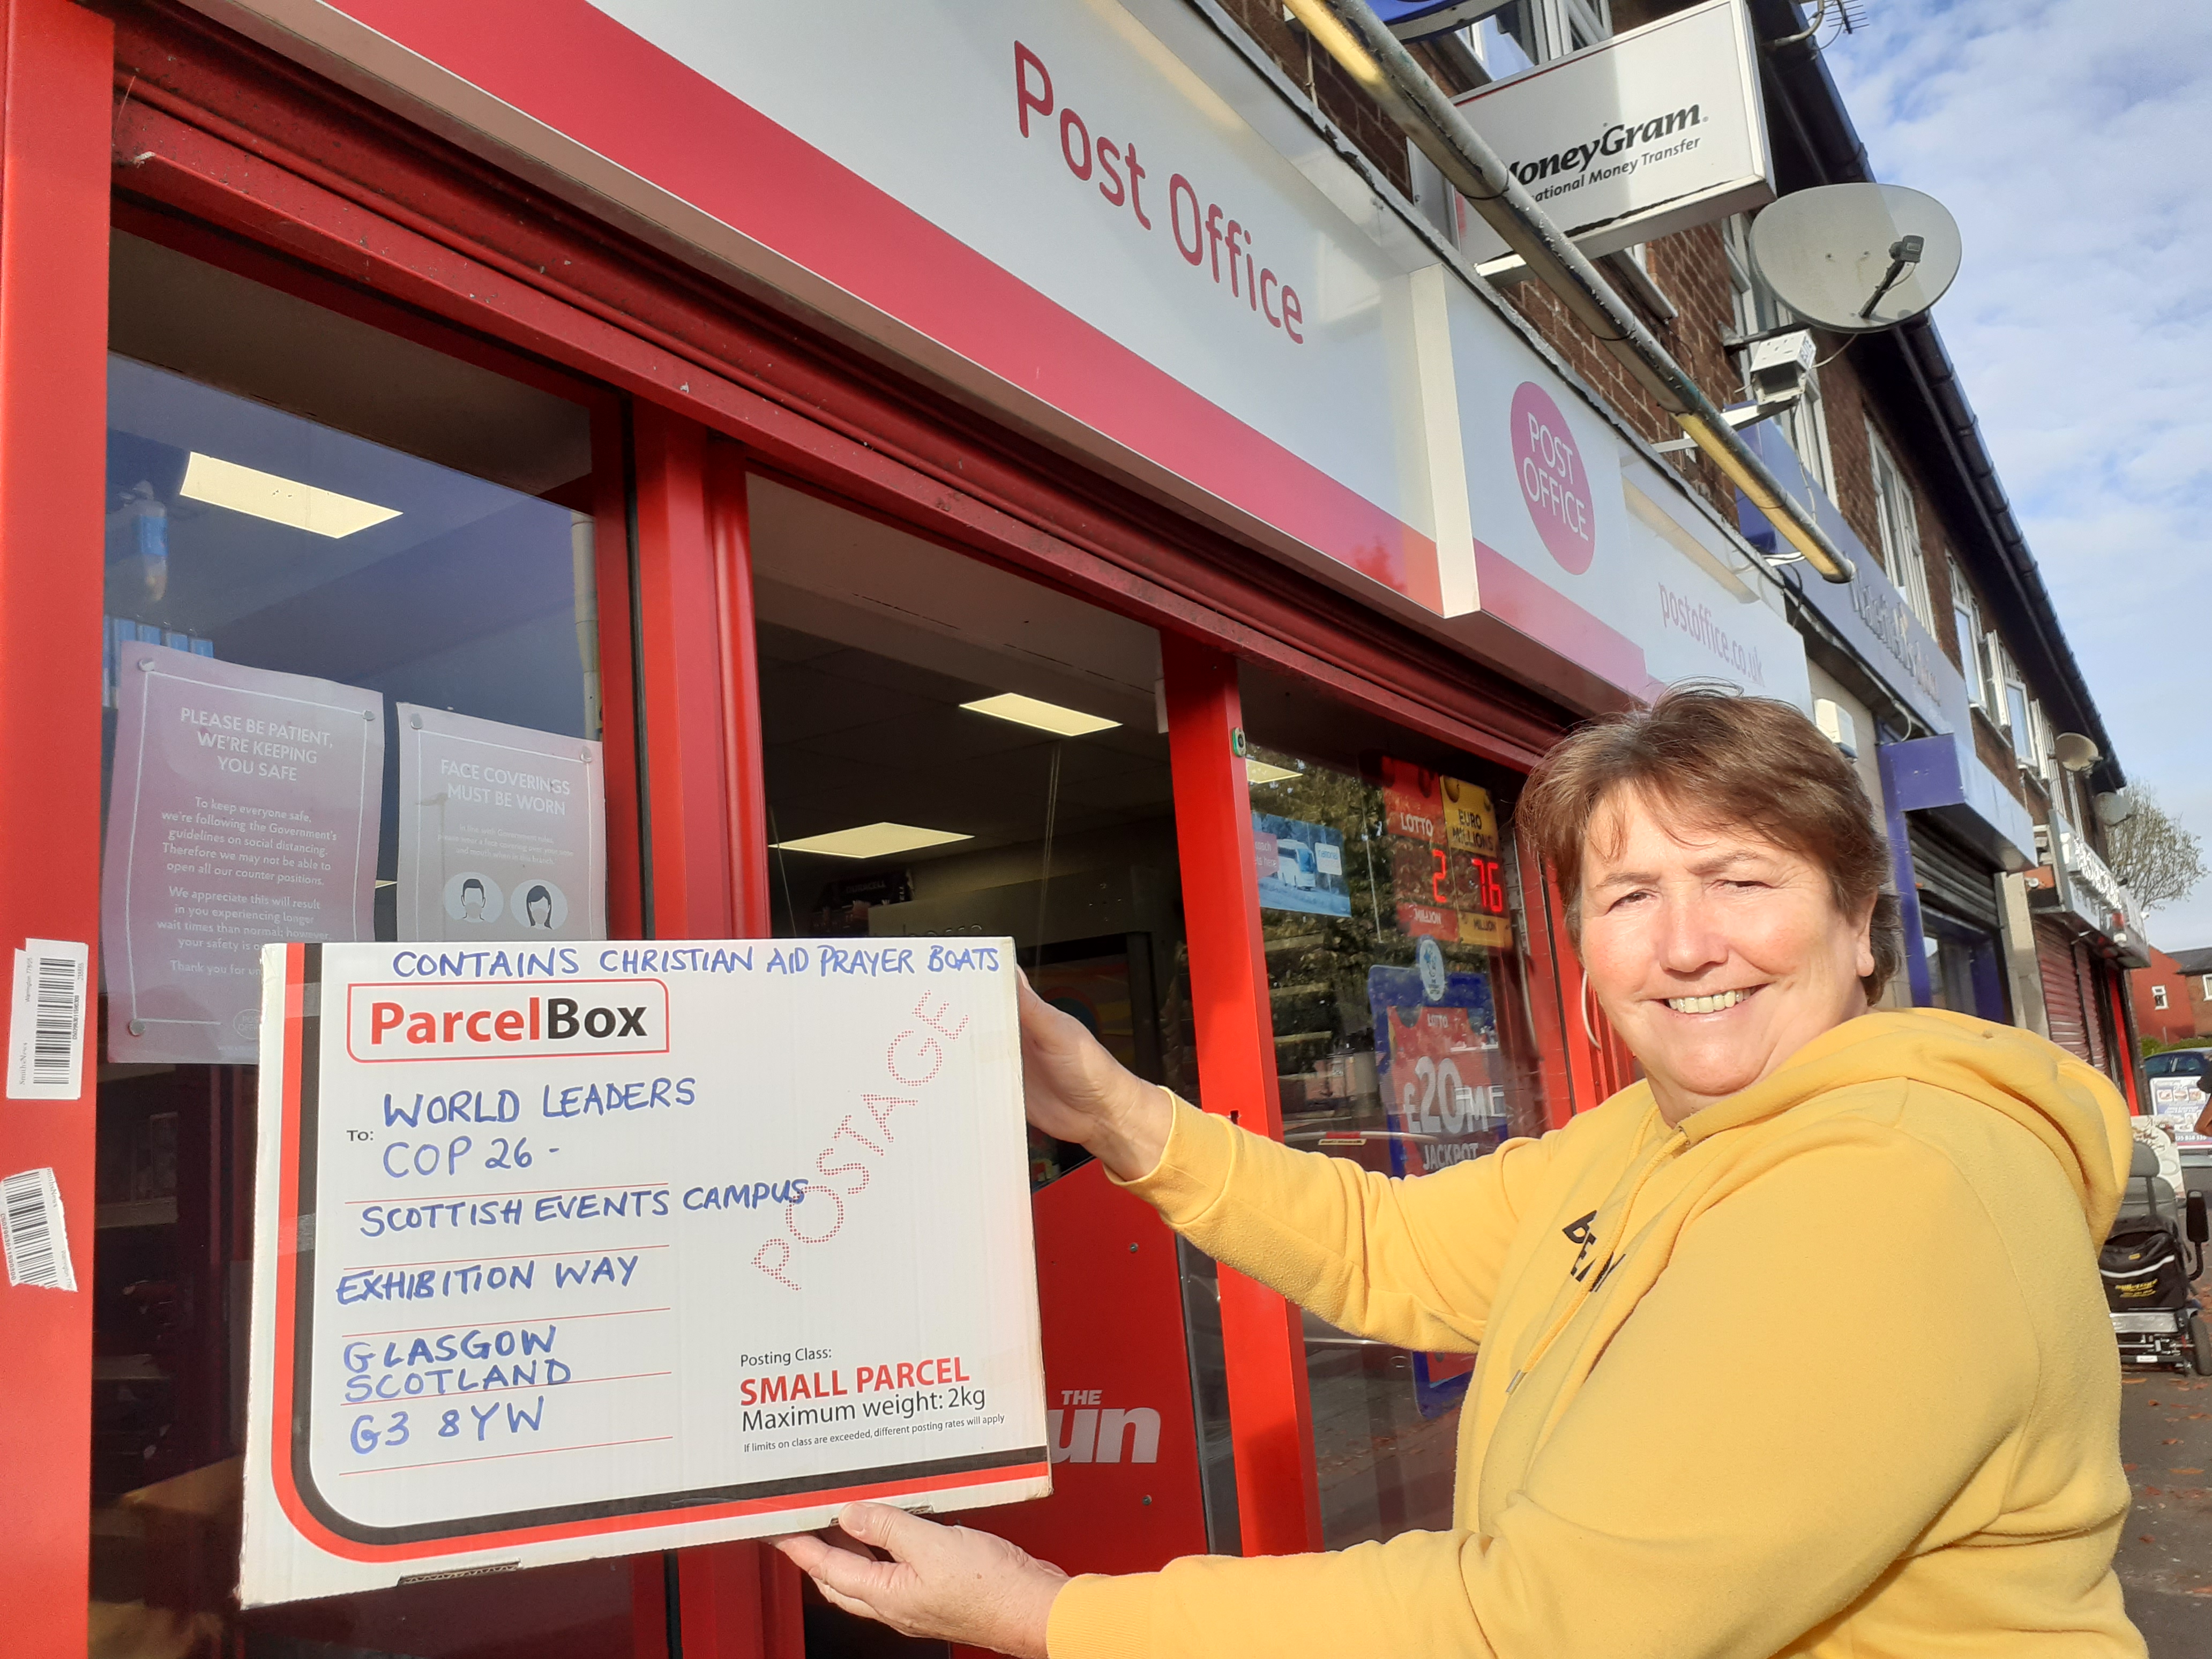 Post Office
MoneyGram.
International Money Transfer
POST
OFFICE
postoffice.co.uk
PLEASE BE PATIENT,
WE'RE KEEPING
YOU SAFE
To keep everyone safe,
we're following the Government's
guidelines on social distancing.
Therefore we may not be able to
open all our counter positions.
We appreciate this will result
in you experiencing longer
wait times than normal; however
your safety is
Thank you for
FACE COVERINGS
MUST BE WORN
LOTTO
2
MILLION
EURO
MILLIONS
76
MILLION
LOTTO
£20M
JACKPOT
CONTAINS CHRISTIAN AID PRAYER BOATS
ParcelBox
POSTAGE
To: WORLD LEADERS
COP 26 -
SCOTTISH EVENTS CAMPUS
EXHIBITION WAY
GLASGOW
SCOTLAND
G3 8YW
Posting Class:
SMALL PARCEL
Maximum weight: 2kg
If limits on class are exceeded, different posting rates will apply
THE
un
SmithsNews